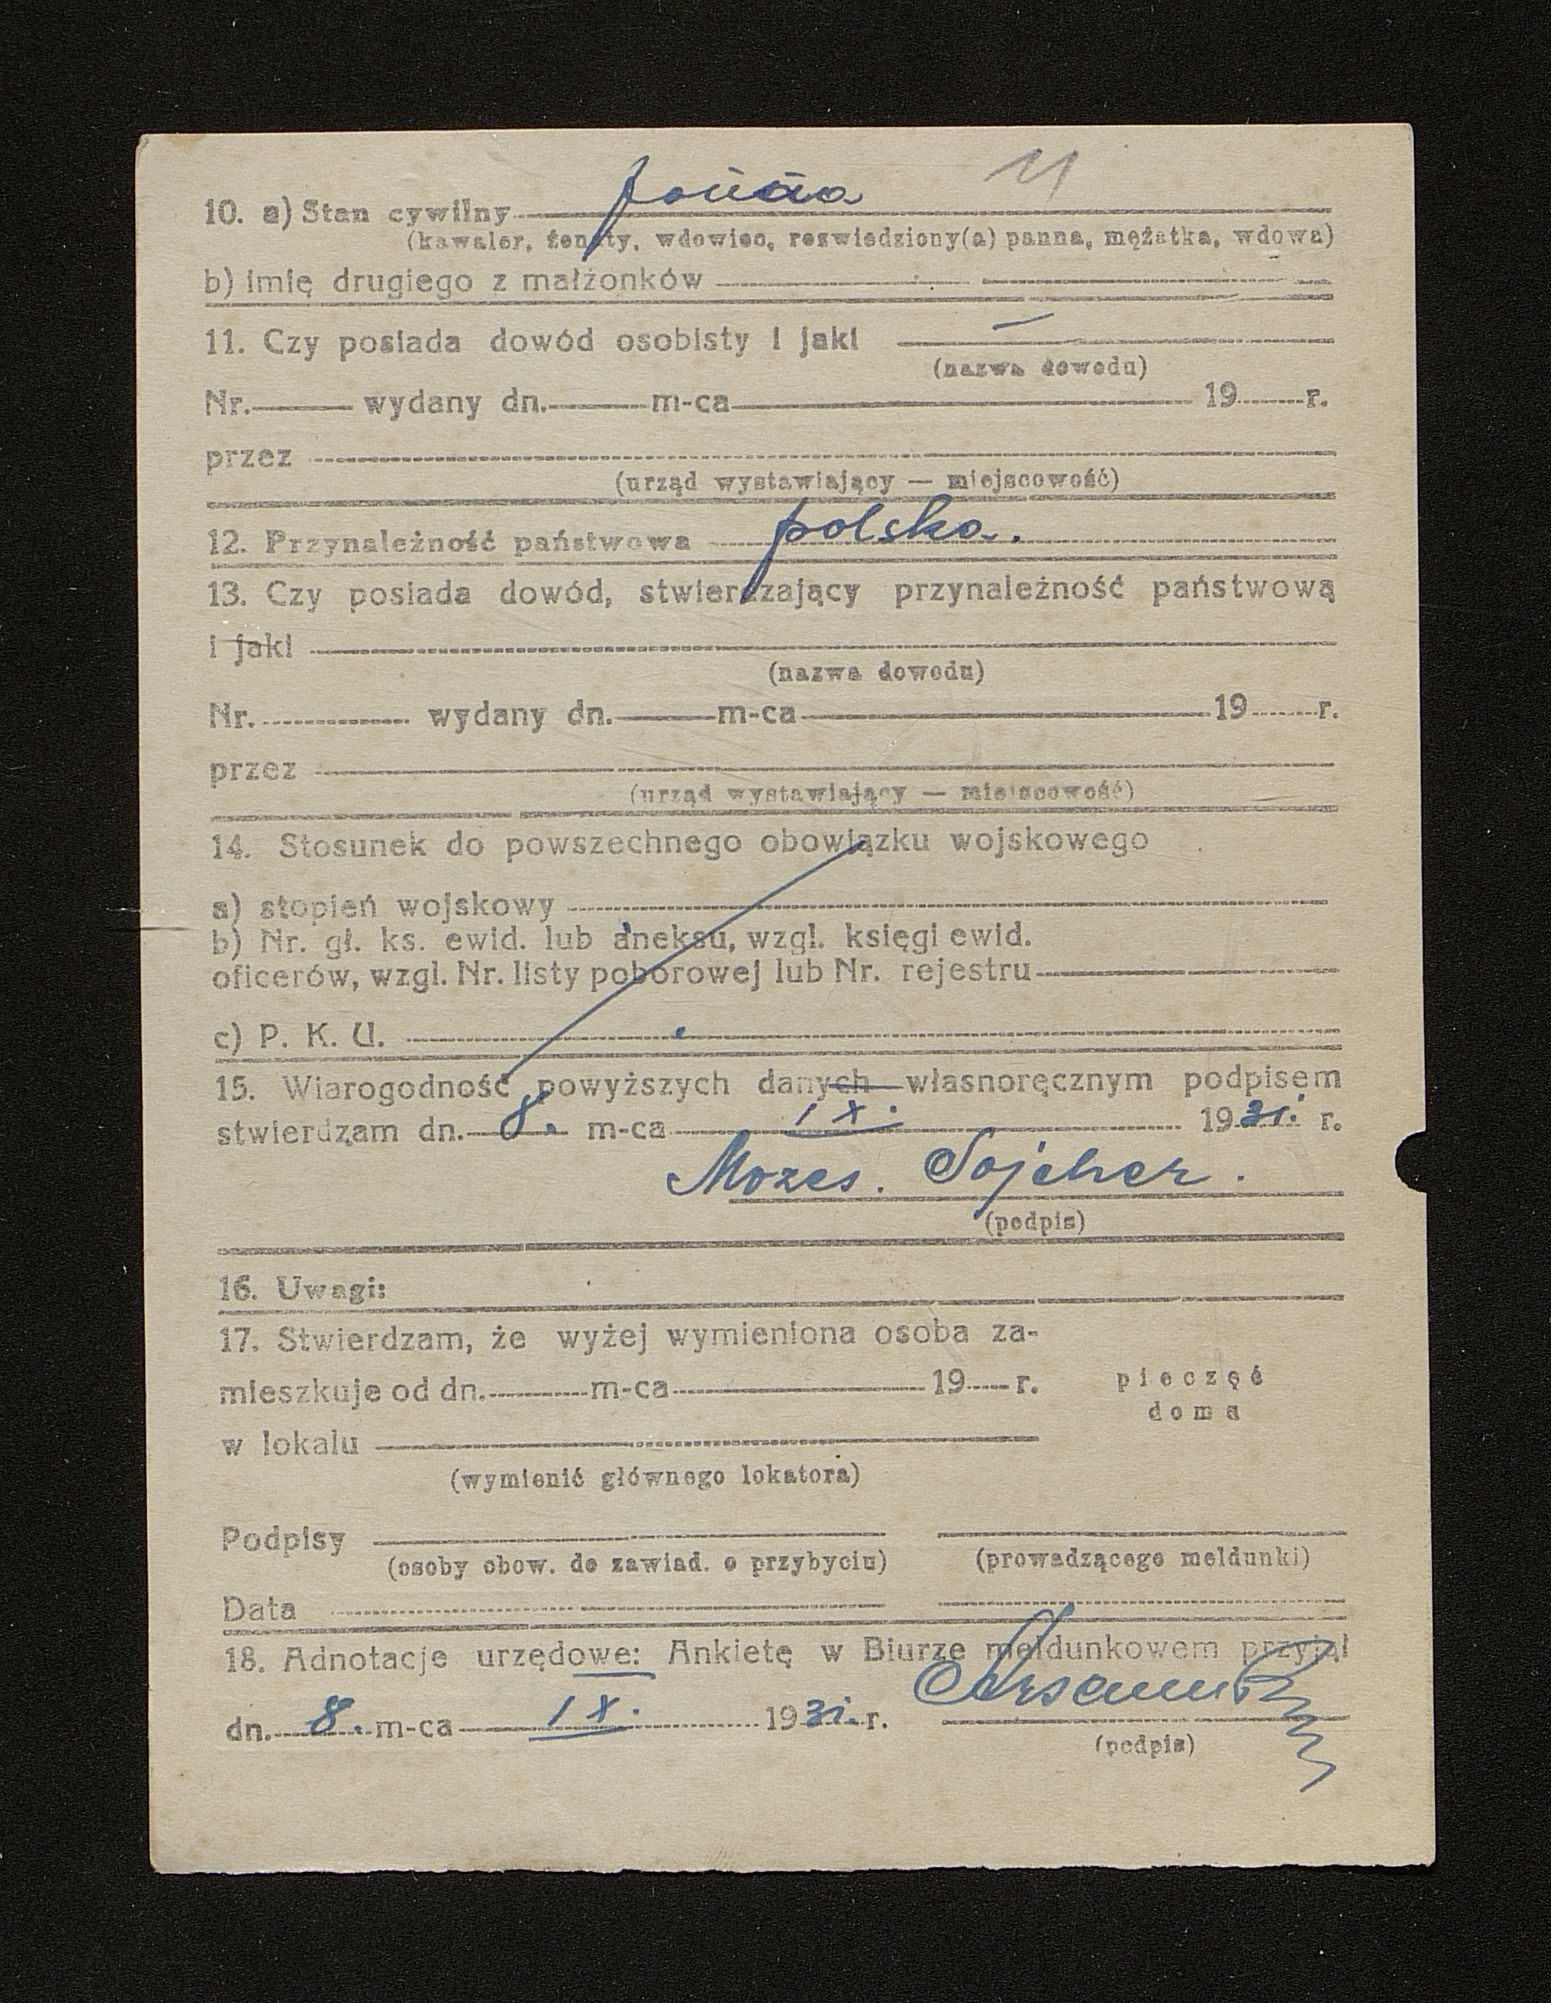 11
10. a) Stan cywilny panna
(kawaler, żonaty, wdowiec, rozwiedziony(a) panna, mężatka, wdowa)
b) imię drugiego z małżonków
11. Czy posiada dowód osobisty i jaki —
(nazwa dowodu)
Nr. wydany dn. m-ca 19 r.
przez
(urząd wystawiający — miejscowość)
12. Przynależność państwowa polska.
13. Czy posiada dowód, stwierdzający przynależność państwową
i jaki
(nazwa dowodu)
Nr. wydany dn. m-ca 19 r.
przez
(urząd wystawiający — miejscowość)
14. Stosunek do powszechnego obowiązku wojskowego
a) stopień wojskowy
b) Nr. gł. ks. ewid. lub aneksu, wzgl. księgi ewid.
oficerów, wzgl. Nr. listy poborowej lub Nr. rejestru
c) P. K. U.
15. Wiarogodność powyższych danych własnoręcznym podpisem
stwierdzam dn. 8. m-ca IX. 1931. r.
Mozes. Sojcher.
(podpis)
16. Uwagi:
17. Stwierdzam, że wyżej wymieniona osoba za-
mieszkuje od dn. m-ca 19 r.
pieczęć
domu
w lokalu
(wymienić głównego lokatora)
Podpisy
(osoby obow. do zawiad. o przybyciu) (prowadzącego meldunki)
Data
18. Adnotacje urzędowe: Ankietę w Biurze meldunkowem przyjął
dn. 8. m-ca IX. 1931. r.
(podpis)